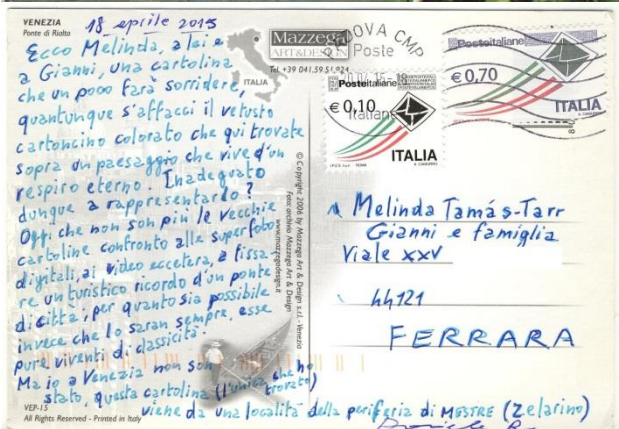 VENEZIA
Ponte di Rialto
18 aprile 2015
Ecco Melinda, a lei e
a Gianni, una cartolina
che un poco farà sorridere,
quantunque s'affacci il vetusto
cartoncino colorato che qui trovate
sopra un paesaggio che vive d'un
respiro eterno. Inadeguato
dunque a rappresentarlo?
Oggi che non son più le vecchie
cartoline confronto alle superfoto
digitali, ai video eccetera, a fissa-
re un turistico ricordo d'un ponte
di città, per quanto sia possibile
invece che lo saran sempre, esse
pure viventi di classicità.
Ma io a Venezia non son
stato, questa cartolina (l'unica che ho
trovato)
viene da una località della periferia di MESTRE (Zelarino)
VEP-15
All Rights Reserved - Printed in Italy
Mazzega
ART&DESIGN
Tel. +39 041.59.51.924
ITALIA
© Copyright 2006 by Mazzega Art & Design s.r.l. - Venezia
Foto: archivio Mazzega Art & Design
www.mazzegadesign.it
PADOVA CMP
Poste
Italiane
Posteitaliane
€ 0,10
ITALIA
Posteitaliane
€ 0,70
ITALIA
Melinda Tamás-Tarr
Gianni e famiglia
Viale XXV
44121
FERRARA